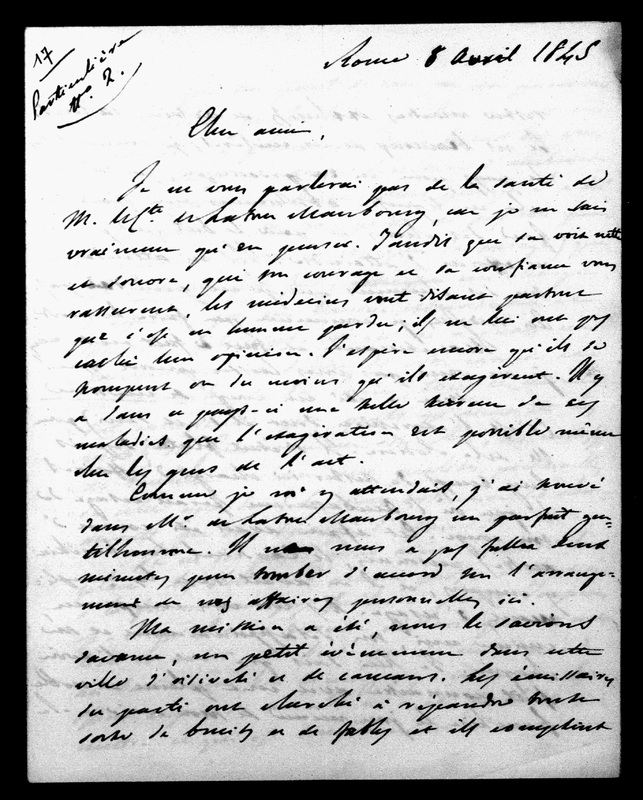 17
Particulière
No. 2.
Rome 8 Avril 1845
Cher ami,
Je ne vous parlerai pas de la santé de
M. le Cte de Latour Maubourg, car je ne sais
vraiment qu'en penser. Tandis que sa voix nette
et sonore, que son courage et sa confiance vous
rassurent, les médecins vont disant partout
que c'est un homme perdu; ils ne lui ont pas
caché leur opinion. J'espère encore qu'ils se
trompent ou du moins qu'ils exagèrent. Il y
a dans ce pays-ci une telle terreur de ces
maladies que l'exagération est possible même
chez les gens de l'art.
Comme je m'y attendais, j'ai trouvé
dans Mr. de Latour Maubourg un parfait gen-
tilhomme. Il ne nous a pas fallu deux
minutes pour tomber d'accord sur l'arrange-
ment de nos affaires personnelles ici.
Ma mission a été, nous le savions
d'avance, un petit évènement dans cette
ville d'oisiveté et de cancans. Les émissaires
du parti ont cherché à répandre toute
sorte de bruits et de fables et ils comptent